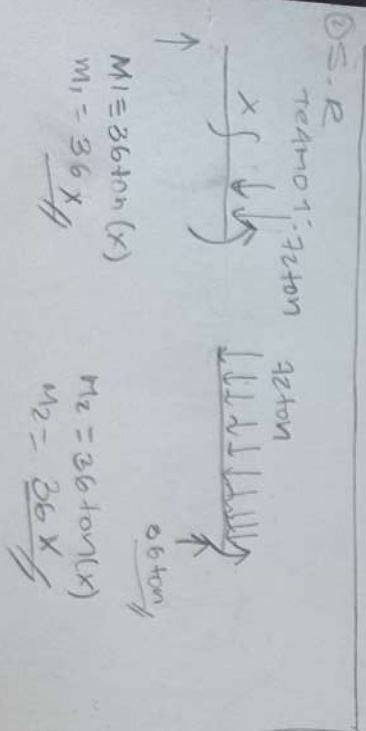 ② S.R
TRAMO 1: 72ton
72ton
X
36 ton
M1 = 36ton (x)
m1 = 36 x
M2 = 36 ton (x)
M2 = 36 x